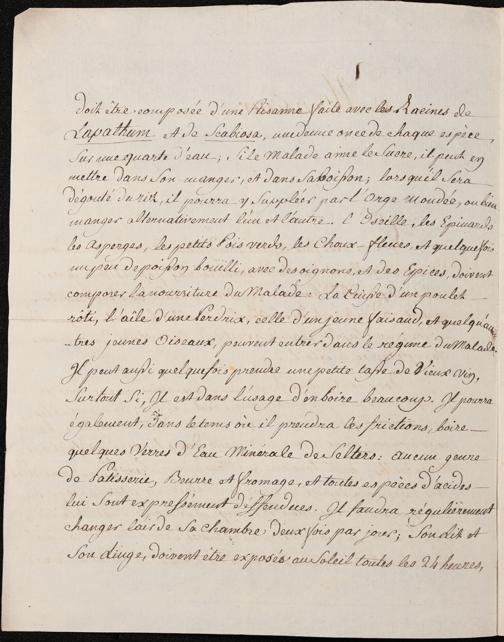 doit être composée d'une Ptisanne faite avec les Racines de
Lapathum et de Scabiosa, une demie once de chaque espèce,
Sur une quarte d'eau; Si le Malade aime le Sucre, il peut en
mettre dans Son manger, et dans Sa boisson; lorsqu'il Sera
dégouté du riz, il pourra y Suppléer par l'Orge Mondée, ou bien
manger alternativement l'un et l'autre. l'Oseille, les Epinards
les Asperges, les petits Pois verds, les Choux-fleurs, et quelquefois
un peu de poisson bouilli, avec des oignons, et des Epices, doivent
composer la nourriture du Malade. La Cuisse d'un poulet
rôti, l'aîle d'une Perdrix, celle d'un jeune faisand, et quelqu'au
tres jeunes Oiseaux, peuvent entrer dans le regime du Malade.
Il peut aussi quelquefois prendre une petite tasse de Vieux vin,
Surtout Si, Il est dans l'usage d'en boire beaucoup. Il pourra
également, dans le tems où il prendra les frictions, boire
quelques Verres d'Eau Minérale de Selters: aucun genre
de Patisserie, Beurre et fromage, et toutes espèces d'acides
lui Sont expressément deffendues. Il faudra régulièrement
changer l'air de Sa chambre deux fois par jour; Son Lit et
Son Linge, doivent être exposés au Soleil toutes les 24 heures,